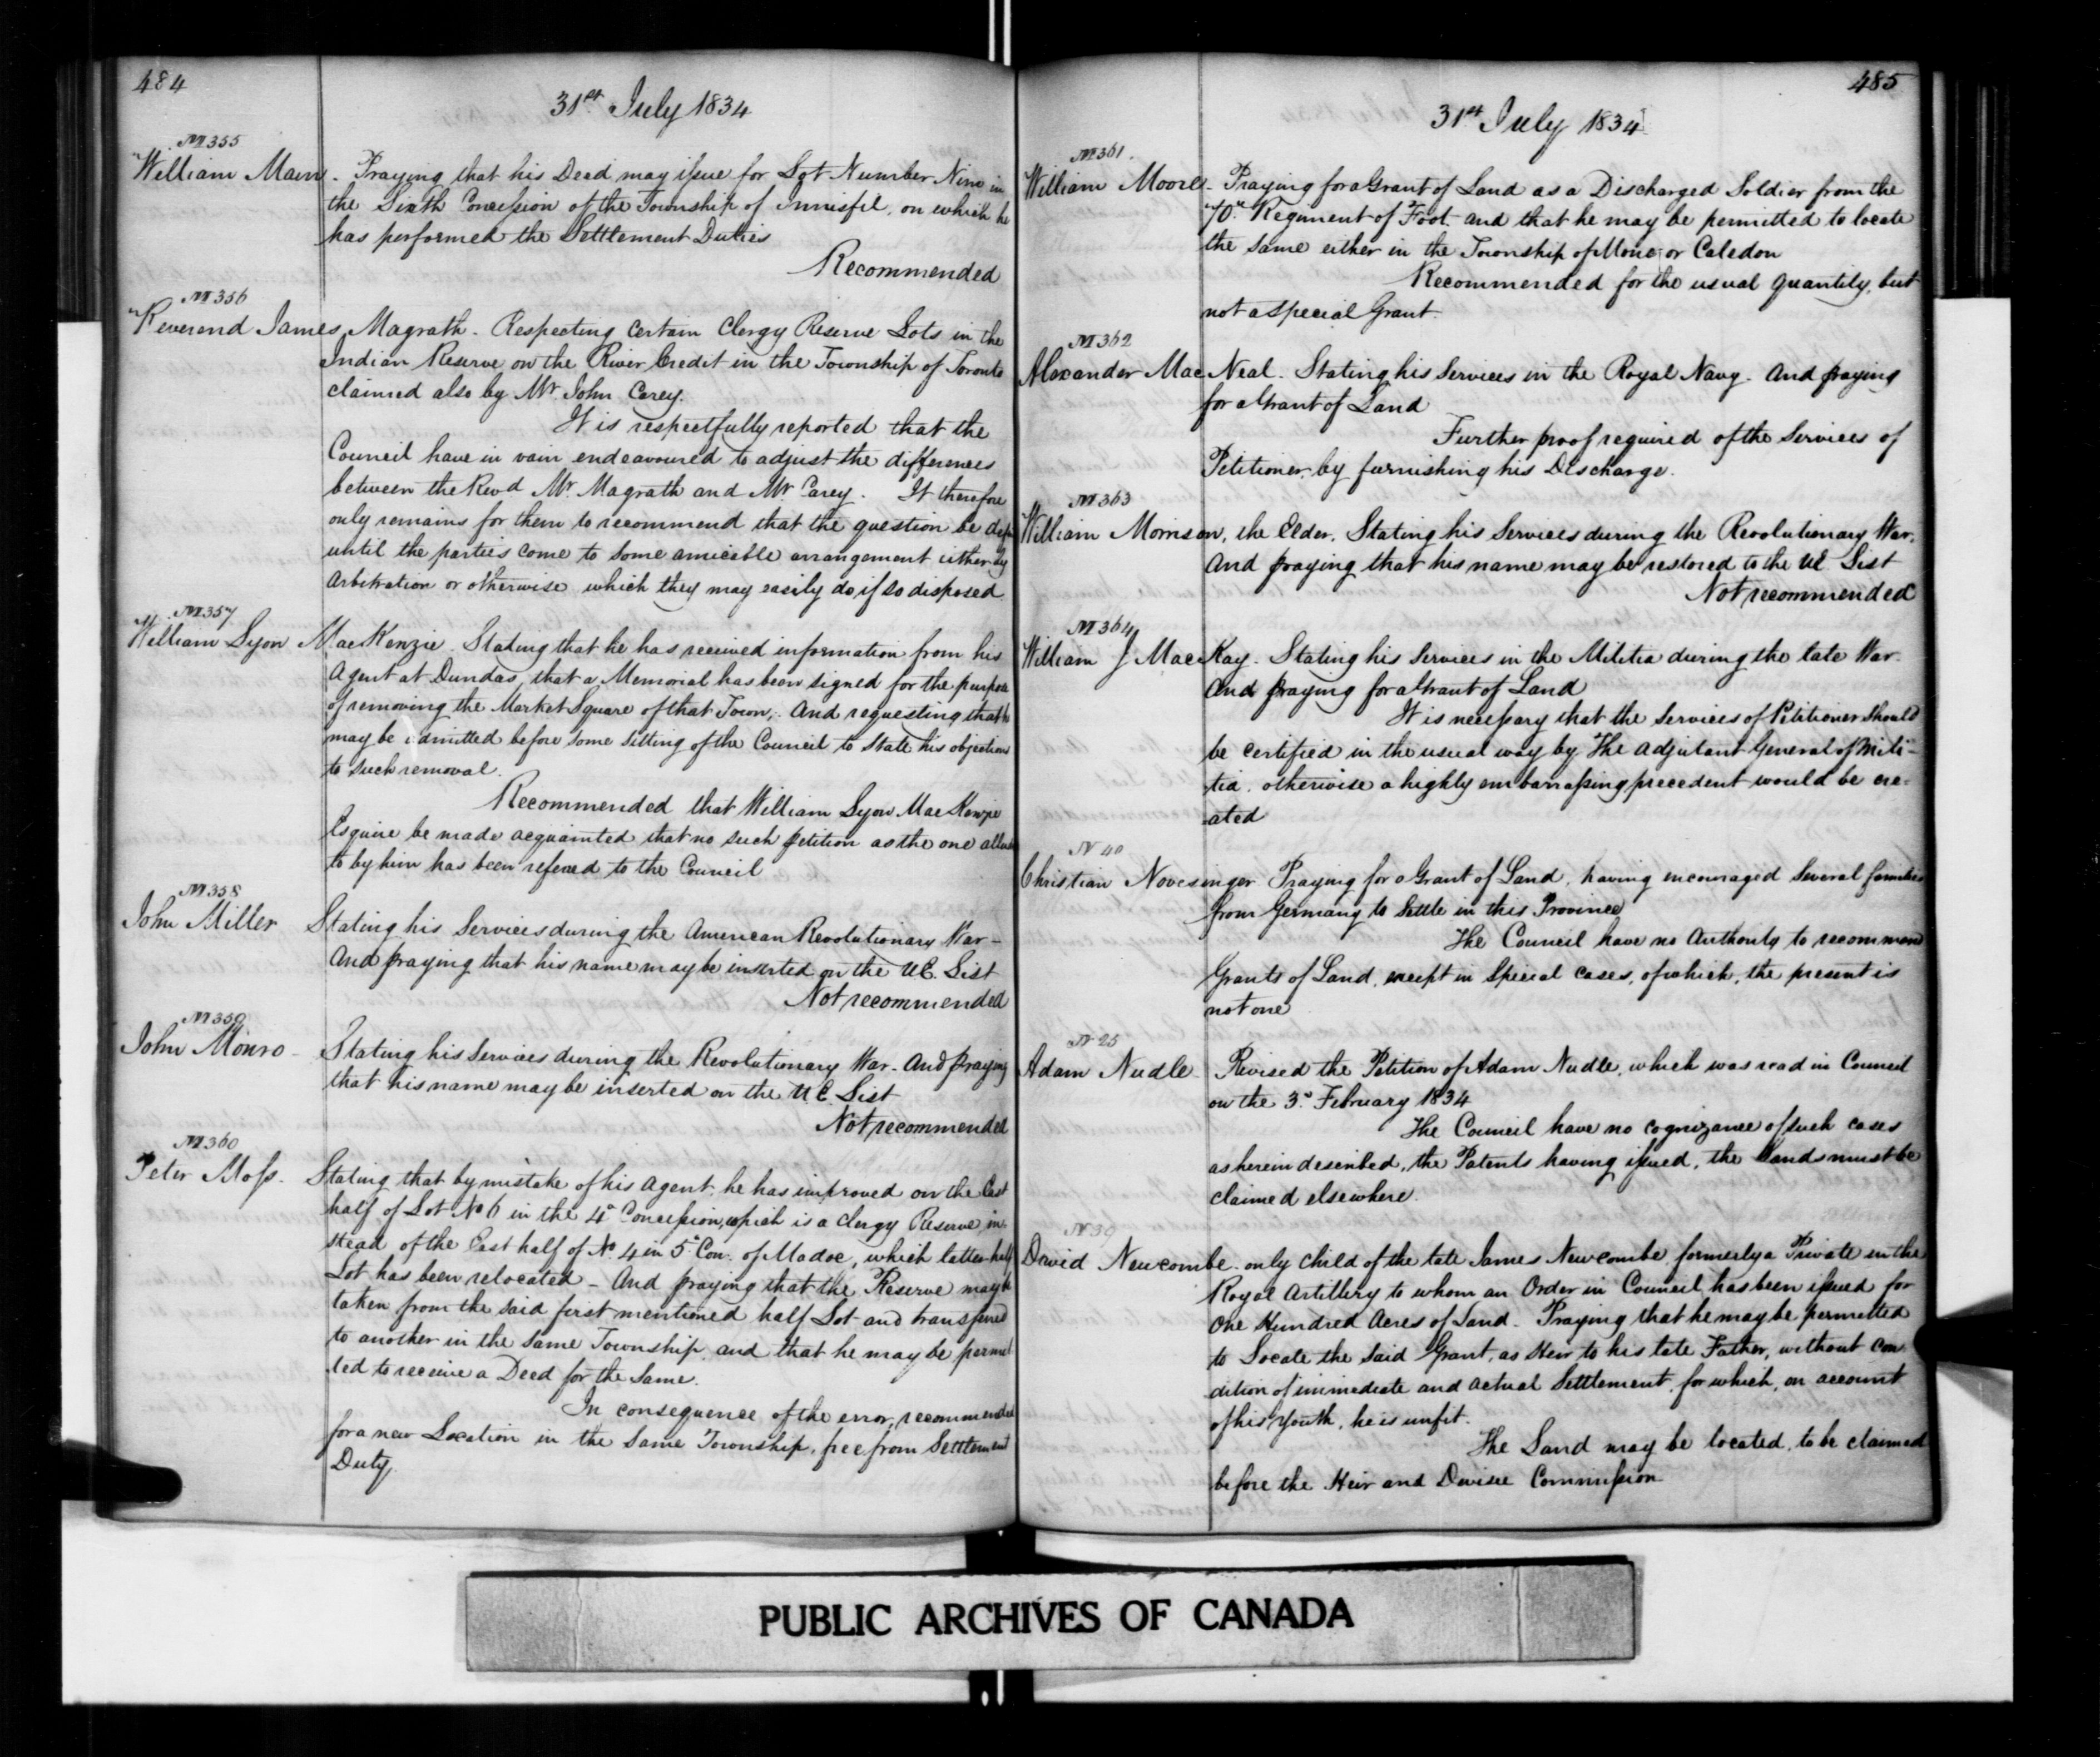 484
31st July 1834
M 355
William Mann. Praying that his Deed may issue for Lot Number Nine in
the Sixth Concession of the Township of Innisfil, on which he
has performed the Settlement Duties
Recommended
M 356
Reverend James Magrath. Respecting certain Clergy Reserve Lots in the
Indian Reserve on the River Credit in the Township of Toronto
claimed also by Mr John Carey.
It is respectfully reported that the
Council have in vain endeavoured to adjust the differences
between the Revd Mr Magrath and Mr Carey. It therefore
only remains for them to recommend that the question be
until the parties come to some amicable arrangement either by
Arbitration or otherwise which they may easily do if so disposed.
M 357
William Lyon MacKenzie. Stating that he has received information from his
Agent at Dundas, that a Memorial has been signed for the purpose
of removing the Market Square of that Town, And requesting that he
may be admitted before some sitting of the Council to State his objections
to such removal.
Recommended that William Lyon MacKenzie
Esquire be made acquainted that no such petition as the one
to by him has been refered to the Council
M 358
John Miller Stating his Services during the American Revolutionary War -
And praying that his name may be inserted on the UE. List
Not recommended
M 359
John Monro - Stating his Services during the Revolutionary War. And praying
that his name may be inserted on the U.E. List
Not recommended
M 360
Peter Moss. Stating that by mistake of his Agent, he has improved on the East
half of Lot No 6 in the 4th Concession, which is a Clergy Reserve, in
stead of the East half of No 4 in 5th Con. of Madoc, which latter half
Lot has been relocated - And praying that the Reserve may be
taken from the said first mentioned half Lot and transfered
to another in the same Township and that he may be permit
ted to receive a Deed for the Same.
In consequence of the error, recommended
for a new Location in the Same Township, free from Settlement
Duty
485
31st July 1834
M 361.
William Moore. Praying for a Grant of Land as a Discharged Soldier from the
70th Regiment of Foot. and that he may be permitted to locate
the same either in the Township of Mono, or Caledon
Recommended for the usual quantity, but
not a special Grant.
M 362
Alexander MacNeal. Stating his Services in the Royal Navy. And praying
for a Grant of Land
Further proof required of the Services of
Petitioner, by furnishing his Discharge.
M 363
William Morrison, the Elder. Stating his Services during the Revolutionary War.
And praying that his name may be restored to the UE List
Not recommended
M 364
William J MacKay. Stating his Services in the Militia during the late War.
And praying for a Grant of Land
It is necessary that the Services of Petitioner should
be certified in the usual way by The Adjutant General of Mili-
tia. otherwise a highly embarrassing precedent would be cre-
ated
N 40
Christian Novesinger Praying for a Grant of Land, having encouraged several families
from Germany to Settle in this Province
The Council have no Authority to recommend
Grants of Land, except in Special Cases, of which, the present is
not one
N 25
Adam Nudle. Revised the Petition of Adam Nudle, which was read in Council
on the 3d February 1834
The Council have no cognizance of such cases
as herein described, the Patents having issued, the Lands must be
claimed elsewhere.
N 39
David Newcombe. only Child of the late James Newcombe, formerly a Private in the
Royal Artillery to whom an Order in Council has been issued for
One Hundred Acres of Land - Praying that he may be permitted
to Locate the said Grant, as Heir to his late Father, without con
dition of immediate and actual Settlement, for which, on account
of his Youth, he is unfit.
The Land may be located, to be claimed
before the Heir and Devisee Commission
PUBLIC ARCHIVES OF CANADA